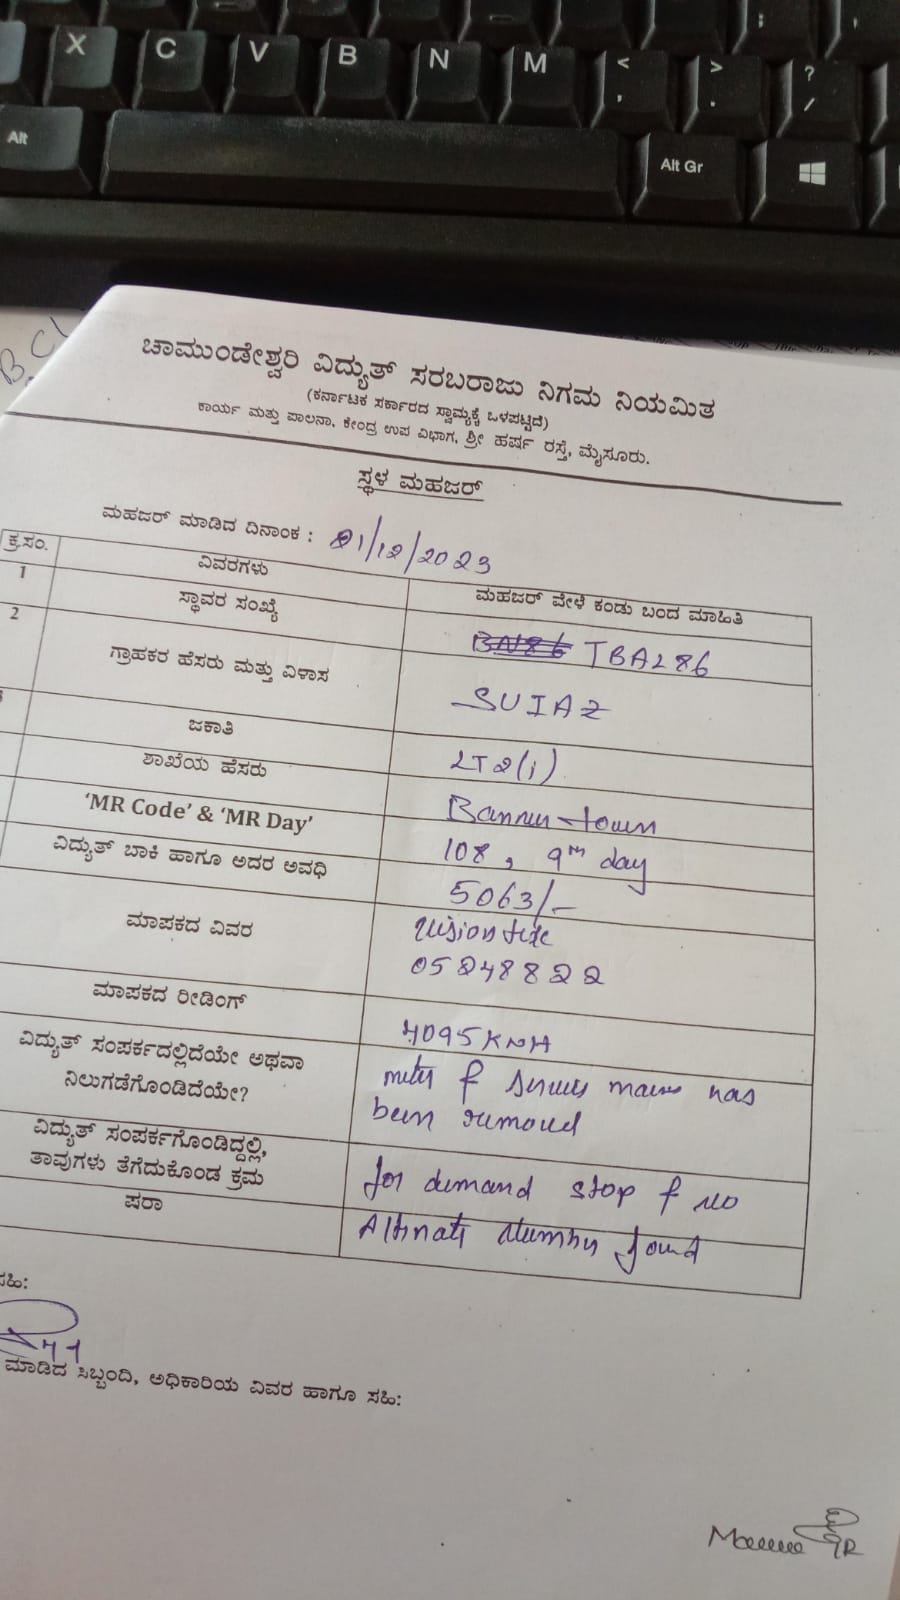 X C V B N M < , > . ? /
Alt
Alt Gr
ಚಾಮುಂಡೇಶ್ವರಿ ವಿದ್ಯುತ್ ಸರಬರಾಜು ನಿಗಮ ನಿಯಮಿತ
(ಕರ್ನಾಟಕ ಸರ್ಕಾರದ ಸ್ವಾಮ್ಯಕ್ಕೆ ಒಳಪಟ್ಟಿದೆ)
ಕಾರ್ಯ ಮತ್ತು ಪಾಲನಾ, ಕೇಂದ್ರ ಉಪ ವಿಭಾಗ, ಶ್ರೀ ಹರ್ಷ ರಸ್ತೆ, ಮೈಸೂರು.
ಸ್ಥಳ ಮಹಜರ್
ಮಹಜರ್ ಮಾಡಿದ ದಿನಾಂಕ : 21/12/2023
ಕ್ರ.ಸಂ. ವಿವರಗಳು ಮಹಜರ್ ವೇಳೆ ಕಂಡು ಬಂದ ಮಾಹಿತಿ
1 ಸ್ಥಾವರ ಸಂಖ್ಯೆ TBAL86
2 ಗ್ರಾಹಕರ ಹೆಸರು ಮತ್ತು ವಿಳಾಸ SUIAZ
ಜಕಾತಿ LT2(i)
ಶಾಖೆಯ ಹೆಸರು Bannur-town
'MR Code' & 'MR Day' 108, 9th day
ವಿದ್ಯುತ್ ಬಾಕಿ ಹಾಗೂ ಅದರ ಅವಧಿ 5063/-
ಮಾಪಕದ ವಿವರ
05248822
ಮಾಪಕದ ರೀಡಿಂಗ್ 4095 KWH
ವಿದ್ಯುತ್ ಸಂಪರ್ಕದಲ್ಲಿದೆಯೇ ಅಥವಾ
ನಿಲುಗಡೆಗೊಂಡಿದೆಯೇ?
meter & service mains has
been removed
ವಿದ್ಯುತ್ ಸಂಪರ್ಕಗೊಂಡಿದ್ದಲ್ಲಿ,
ತಾವುಗಳು ತೆಗೆದುಕೊಂಡ ಕ್ರಮ
for demand stop & no
ಷರಾ Alternate number found
ಸಹಿ:
ಮಾಡಿದ ಸಿಬ್ಬಂದಿ, ಅಧಿಕಾರಿಯ ವಿವರ ಹಾಗೂ ಸಹಿ: